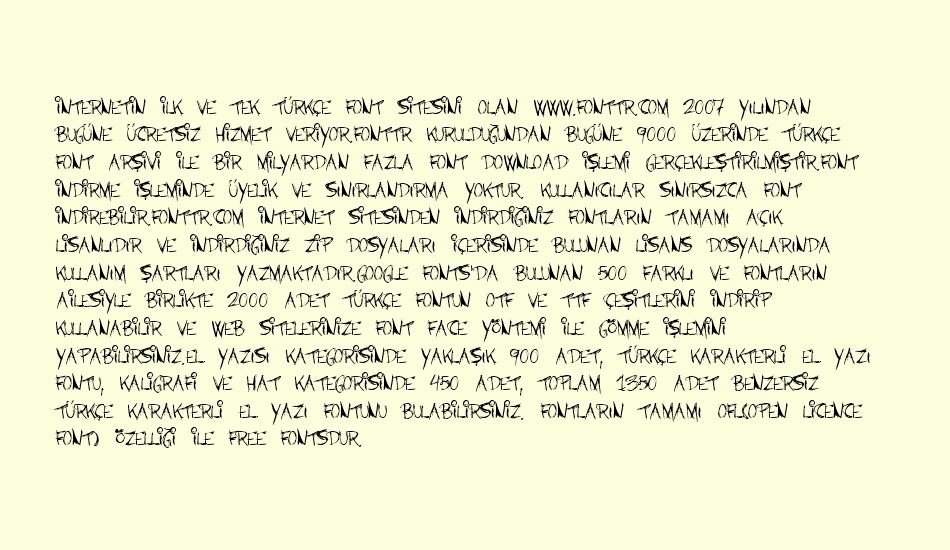 İNTERNETİN İLK VE TEK TÜRKÇE FONT SİTESİNİ OLAN WWW.FONTTR.COM 2007 YILINDAN
BUGÜNE ÜCRETSİZ HİZMET VERİYOR.FONTTR KURULDUĞUNDAN BUGÜNE 9000 ÜZERİNDE TÜRKÇE
FONT ARŞİVİ İLE BİR MİLYARDAN FAZLA FONT DOWNLOAD İŞLEMİ GERÇEKLEŞTİRİLMİŞTİR.FONT
İNDİRME İŞLEMİNDE ÜYELİK VE SINIRLANDIRMA YOKTUR. KULLANICILAR SINIRSIZCA FONT
İNDİREBİLİR.FONTTR.COM İNTERNET SİTESİNDEN İNDİRDİĞİNİZ FONTLARIN TAMAMI AÇIK
LİSANLIDIR VE İNDİRDİĞİNİZ ZİP DOSYALARI İÇERİSİNDE BULUNAN LİSANS DOSYALARINDA
KULLANIM ŞARTLARI YAZMAKTADIR.GOOGLE FONTS'DA BULUNAN 500 FARKLI VE FONTLARIN
AİLESİYLE BİRLİKTE 2000 ADET TÜRKÇE FONTUN OTF VE TTF ÇEŞİTLERİNİ İNDİRİP
KULLANABİLİR VE WEB SİTELERİNİZE FONT FACE YÖNTEMİ İLE GÖMME İŞLEMİNİ
YAPABİLİRSİNİZ.EL YAZISI KATEGORİSİNDE YAKLAŞIK 900 ADET, TÜRKÇE KARAKTERLİ EL YAZI
FONTU, KALİGRAFİ VE HAT KATEGORİSİNDE 450 ADET, TOPLAM 1350 ADET BENZERSİZ
TÜRKÇE KARAKTERLİ EL YAZI FONTUNU BULABİLİRSİNİZ. FONTLARIN TAMAMI OFL(OPEN LİCENCE
FONT) ÖZELLİĞİ İLE FREE FONTSDUR.